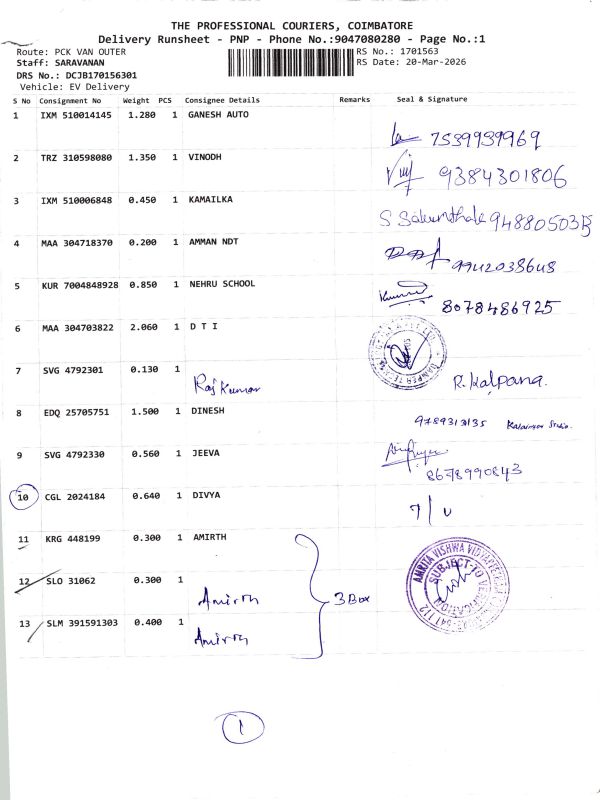 THE PROFESSIONAL COURIERS, COIMBATORE
Delivery Runsheet - PNP - Phone No.:9047080280 - Page No.:1
Route: PCK VAN OUTER RS No.: 1701563
Staff: SARAVANAN RS Date: 20-Mar-2026
DRS No.: DCJB170156301
Vehicle: EV Delivery
S No Consignment No Weight PCS Consignee Details Remarks Seal & Signature
1 IXM 510014145 1.280 1 GANESH AUTO
7539939969
2 TRZ 310598080 1.350 1 VINODH
9384301806
3 IXM 510006848 0.450 1 KAMAILKA
S Sakunthala
4 MAA 304718370 0.200 1 AMMAN NDT
9942038648
5 KUR 7004848928 0.850 1 NEHRU SCHOOL
8078486925
6 MAA 304703822 2.060 1 D T I
7 SVG 4792301 0.130 1
Raj Kumar R. Kalpana.
8 EDQ 25705751 1.500 1 DINESH
9789313135
9 SVG 4792330 0.560 1 JEEVA
8678990843
10 CGL 2024184 0.640 1 DIVYA
11 KRG 448199 0.300 1 AMIRTH
12 SLO 31062 0.300 1
Amirth 3 Box
13 SLM 391591303 0.400 1
Amirth
AMRITA VISHWA VIDYAPEETHAM
SUBJECT TO VERIFICATION
1